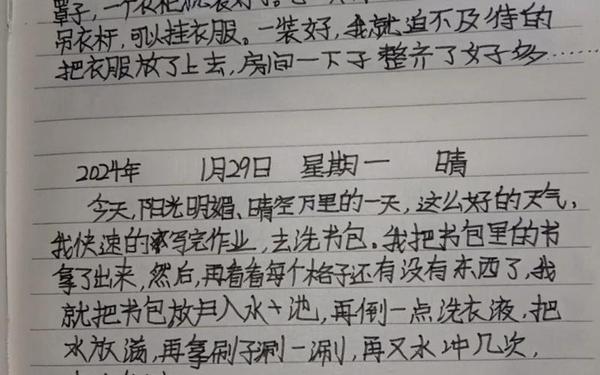 罩子,一个衣柜就装好了。
吊衣杆,可以挂衣服。一装好,我就迫不及待的
把衣服放了上去,房间一下子整齐了好多……
2024年 1月29日 星期一 晴
今天,阳光明媚、晴空万里的一天,这么好的天气,
我快速的写完作业,去洗书包。我把书包里的书
拿了出来,然后,再看看每个格子还有没有东西了,我
就把书包放入水池,再倒一点洗衣液,把
水放满,再拿刷子涮一涮,再又水冲几次,